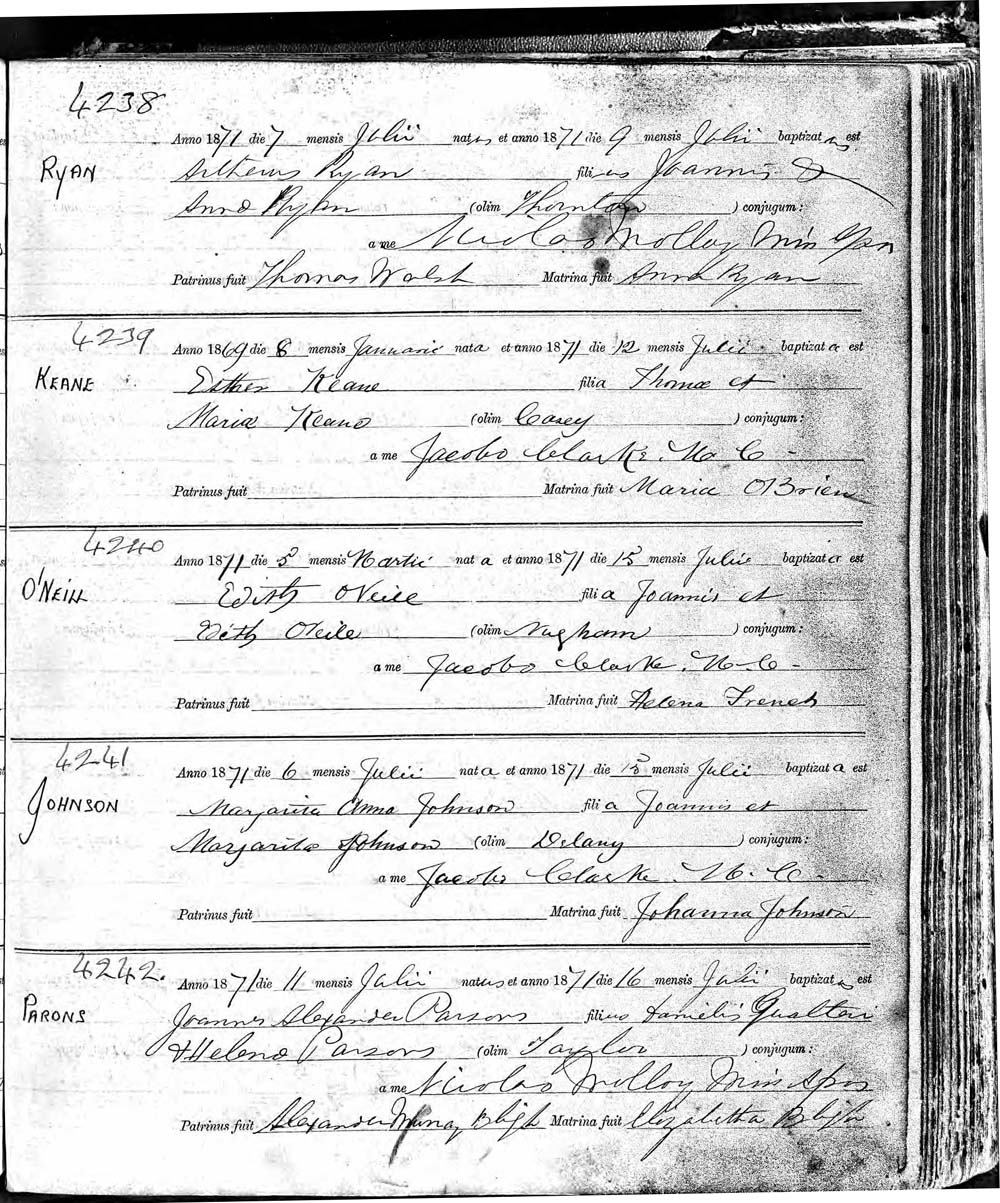 4238
Anno 1871 die 7 mensis Julii natus et anno 1871 die 9 mensis Julii baptizatus est
RYAN Ryan filius Joannis &
Anna Ryan (olim Thornton) conjugum:
a me Nicolao Molloy Min Apos
Patrinus fuit Thomas Walsh Matrina fuit Anna Ryan
4239
Anno 1869 die 8 mensis Januarii nata et anno 1871 die 12 mensis Julii baptizata est
KEANE Esther Keane filia Thomæ et
Mariæ Keane (olim Casey) conjugum:
a me Jacobo Clarke. M. C -
Patrinus fuit Matrina fuit Maria O'Brien
4240
Anno 1871 die 5 mensis Martii nata et anno 1871 die 15 mensis Julii baptizata est
O'NEILL Edith O'Neill filia Joannis et
Edith (olim) conjugum:
a me Jacobo Clarke. M. C -
Patrinus fuit Matrina fuit Helena French
4241
Anno 1871 die 6 mensis Julii nata et anno 1871 die 15 mensis Julii baptizata est
JOHNSON Margarita Anna Johnson filia Joannis et
Margaritæ Johnson (olim Delany) conjugum:
a me Jacobo Clarke. M. C -
Patrinus fuit Matrina fuit Johanna Johnson
4242.
Anno 1871 die 11 mensis Julii natus et anno 1871 die 16 mensis Julii baptizatus est
PARONS Joannes Alexander Parsons filius Danielis Gualteri
& Helenæ Parsons (olim Taylor) conjugum:
a me Nicolao Molloy Min Apos
Patrinus fuit Alexander Murray Bligh Matrina fuit Elizabetha Bligh